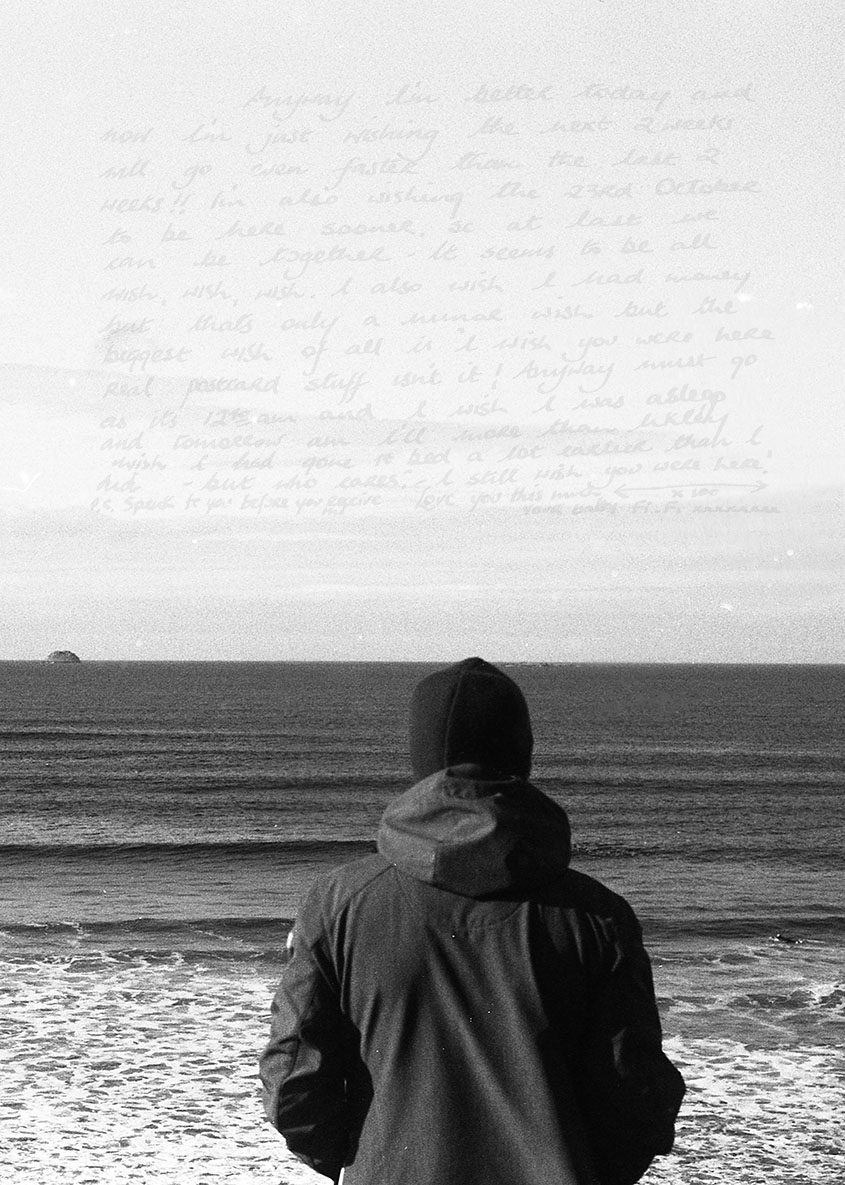 Anyway I'm better today and
now I'm just wishing the next 2 weeks
will go even faster than the last 2
weeks!! I'm also wishing the 23rd October
to be here sooner, so at last we
can be together - It seems to be all
wish, wish, wish. I also wish I had money
but thats only a minor wish but the
biggest wish of all is 'I wish you were here
real postcard stuff isn't it! Anyway must go
as it's 12 am and I wish I was asleep
and tomorrow am I'll more than likely
wish I had gone to bed a lot earlier than I
did - but who cares. - I still wish you were here!
P.S. Speak to you before you receive Love you this much x 100
Fi-Fi xxxxxxxx